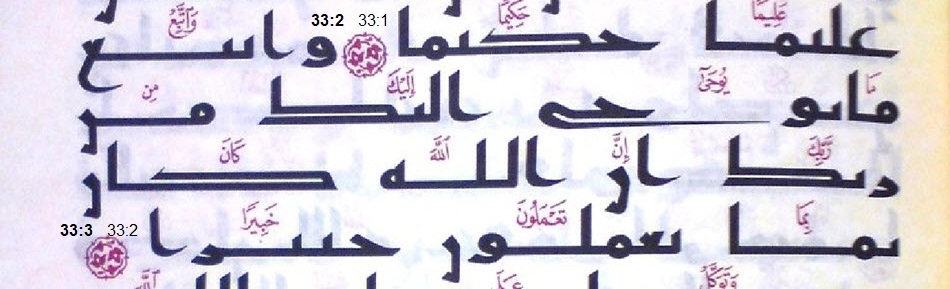 عليما حكيما 33:1 33:2 واتبع
ما يوحى اليك من
ربك ان الله كان
بما تعملون خبيرا 33:2 33:3
عَلِيمًا حَكِيمًا وَٱتَّبِعْ
مَا يُوحَىٰٓ إِلَيْكَ مِن
رَّبِّكَ إِنَّ ٱللَّهَ كَانَ
بِمَا تَعْمَلُونَ خَبِيرًا
وَتَوَكَّلْ عَلَى ٱللَّهِ